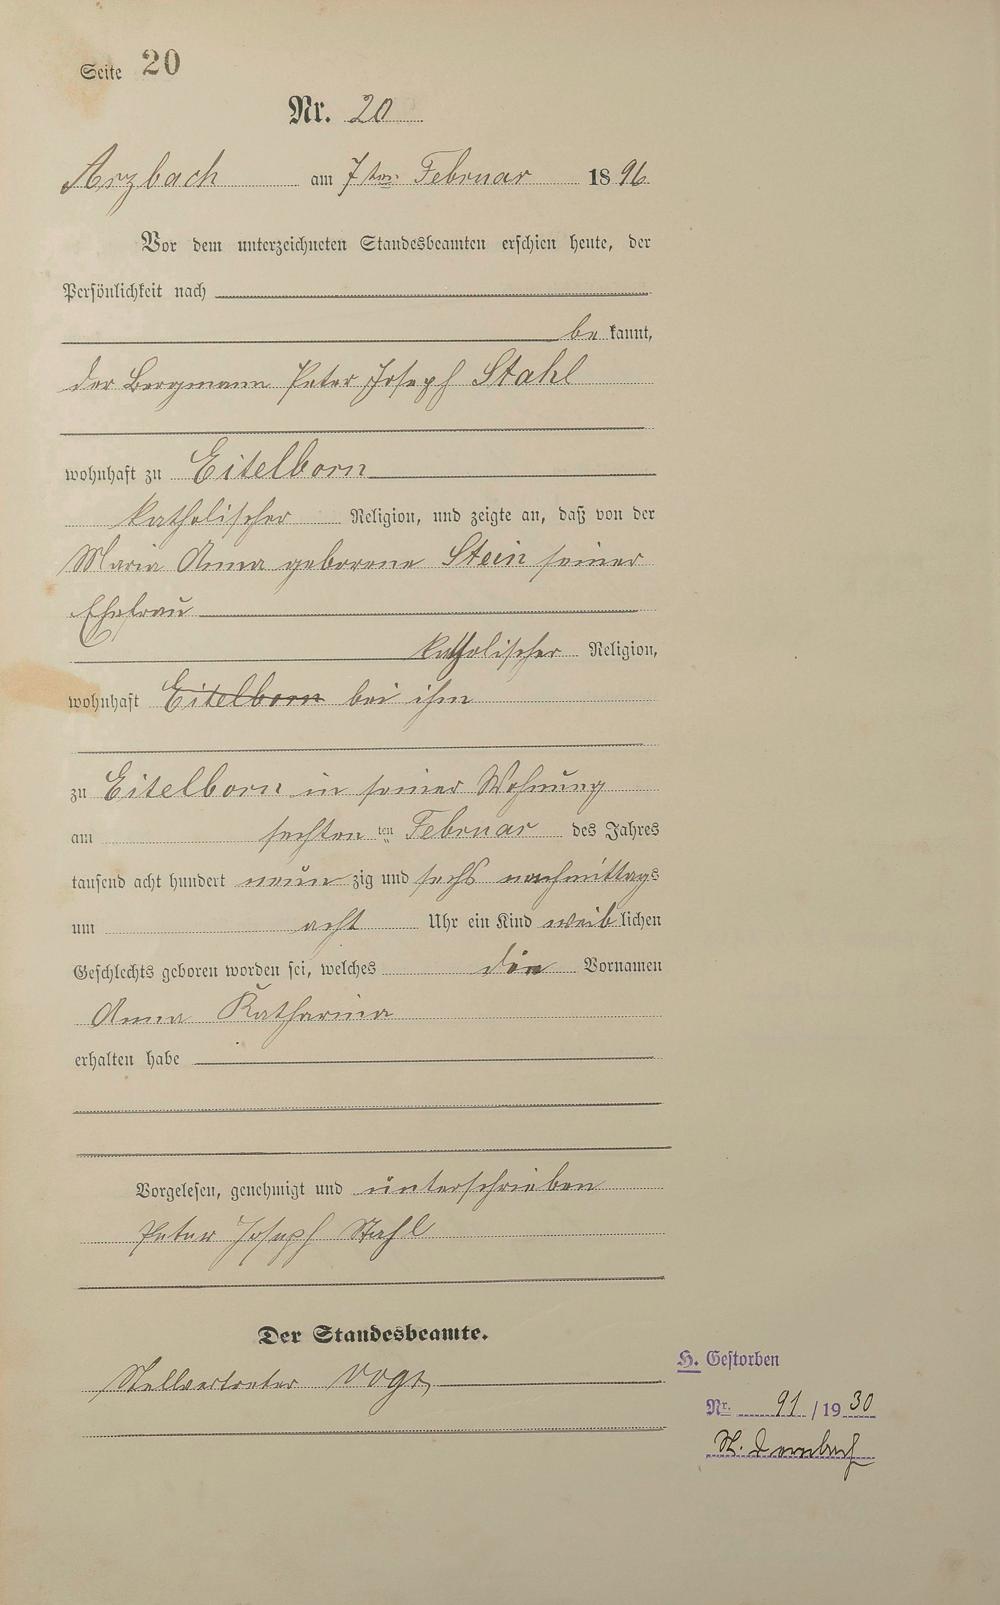 Seite 20
Nr. 20
Arzbach am 7ten Februar 1896
Vor dem unterzeichneten Standesbeamten erschien heute, der
Persönlichkeit nach
be kannt,
der Bergmann Peter Joseph Stahl
wohnhaft zu Eitelborn
katholischer Religion, und zeigte an, daß von der
Maria Anna geborene Stein seiner
Ehefrau
katholischer Religion,
wohnhaft Eitelborn bei ihm
zu Eitelborn in seiner Wohnung
am sechten ten Februar des Jahres
tausend acht hundert neun zig und sechs nachmittags
um acht Uhr ein Kind weiblichen
Geschlechts geboren worden sei, welches die Vornamen
Anna Katharina
erhalten habe
Vorgelesen, genehmigt und unterschrieben
Peter Joseph Stahl
Der Standesbeamte.
Stellvertreter Vogt
H. Gestorben
Nr. 91 / 19 30
St. Dornbach